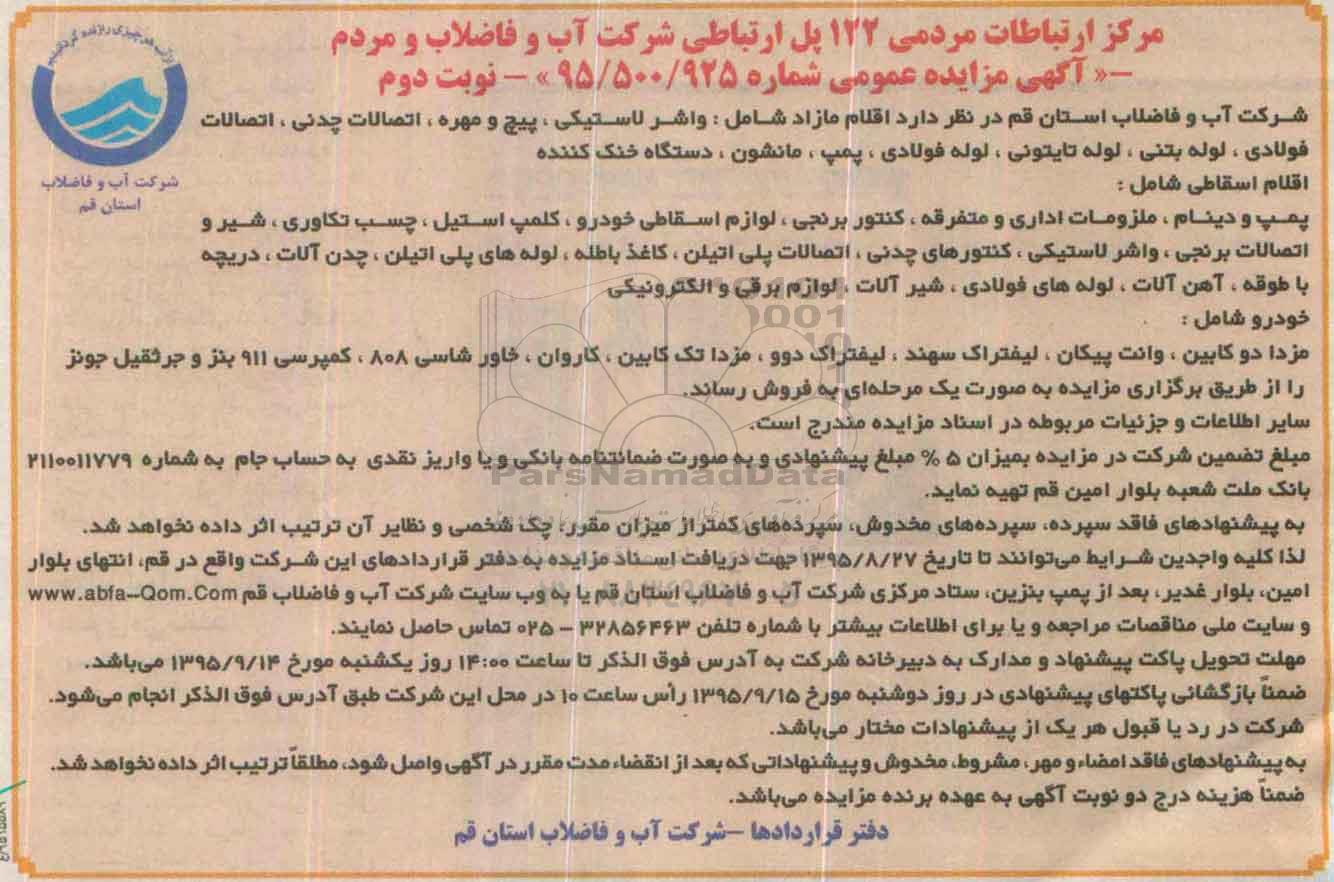 مرکز ارتباطات مردمی ۱۲۲ پل ارتباطی شرکت آب و فاضلاب و مردم
–« آگهی مزایده عمومی شماره ۹۵/۵۰۰/۹۲۵ » – نوبت دوم
شرکت آب و فاضلاب
استان قم
شرکت آب و فاضلاب استان قم در نظر دارد اقلام مازاد شامل : واشر لاستیکی ، پیچ و مهره ، اتصالات چدنی ، اتصالات
فولادی ، لوله بتنی ، لوله تایتونی ، لوله فولادی ، پمپ ، مانشون ، دستگاه خنک کننده
اقلام اسقاطی شامل :
پمپ و دینام ، ملزومات اداری و متفرقه ، کنتور برنجی ، لوازم اسقاطی خودرو ، کلمپ استیل ، چسب تکاوری ، شیر و
اتصالات برنجی ، واشر لاستیکی ، کنتورهای چدنی ، اتصالات پلی اتیلن ، کاغذ باطله ، لوله های پلی اتیلن ، چدن آلات ، دریچه
با طوقه ، آهن آلات ، لوله های فولادی ، شیر آلات ، لوازم برقی و الکترونیکی
خودرو شامل :
مزدا دو کابین ، وانت پیکان ، لیفتراک سهند ، لیفتراک دوو ، مزدا تک کابین ، کاروان ، خاور شاسی ۸۰۸ ، کمپرسی ۹۱۱ بنز و جرثقیل جونز
را از طریق برگزاری مزایده به صورت یک مرحله‌ای به فروش رساند.
سایر اطلاعات و جزئیات مربوطه در اسناد مزایده مندرج است.
مبلغ تضمین شرکت در مزایده بمیزان ۵ % مبلغ پیشنهادی و به صورت ضمانتنامه بانکی و یا واریز نقدی به حساب جام به شماره ۲۱۱۰۰۱۱۷۷۹
بانک ملت شعبه بلوار امین قم تهیه نماید.
ParsNamadData
به پیشنهادهای فاقد سپرده، سپرده‌های مخدوش، سپرده‌های کمتر از میزان مقرر، چک شخصی و نظایر آن ترتیب اثر داده نخواهد شد.
لذا کلیه واجدین شرایط می‌توانند تا تاریخ ۱۳۹۵/۸/۲۷ جهت دریافت اسناد مزایده به دفتر قراردادهای این شرکت واقع در قم، انتهای بلوار
امین، بلوار غدیر، بعد از پمپ بنزین، ستاد مرکزی شرکت آب و فاضلاب استان قم یا به وب سایت شرکت آب و فاضلاب قم www.abfa–Qom.Com
و سایت ملی مناقصات مراجعه و یا برای اطلاعات بیشتر با شماره تلفن ۳۲۸۵۶۴۶۳ – ۰۲۵ تماس حاصل نمایند.
مهلت تحویل پاکت پیشنهاد و مدارک به دبیرخانه شرکت به آدرس فوق الذکر تا ساعت ۱۴:۰۰ روز یکشنبه مورخ ۱۳۹۵/۹/۱۴ می‌باشد.
ضمناً بازگشائی پاکتهای پیشنهادی در روز دوشنبه مورخ ۱۳۹۵/۹/۱۵ رأس ساعت ۱۰ در محل این شرکت طبق آدرس فوق الذکر انجام می‌شود.
شرکت در رد یا قبول هر یک از پیشنهادات مختار می‌باشد.
به پیشنهادهای فاقد امضاء و مهر، مشروط، مخدوش و پیشنهاداتی که بعد از انقضاء مدت مقرر در آگهی واصل شود، مطلقاً ترتیب اثر داده نخواهد شد.
ضمناً هزینه درج دو نوبت آگهی به عهده برنده مزایده می‌باشد.
دفتر قراردادها –شرکت آب و فاضلاب استان قم